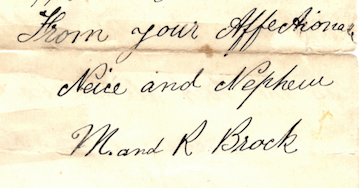 From your Affectiona
Neice and Nephew
M. and R Brock